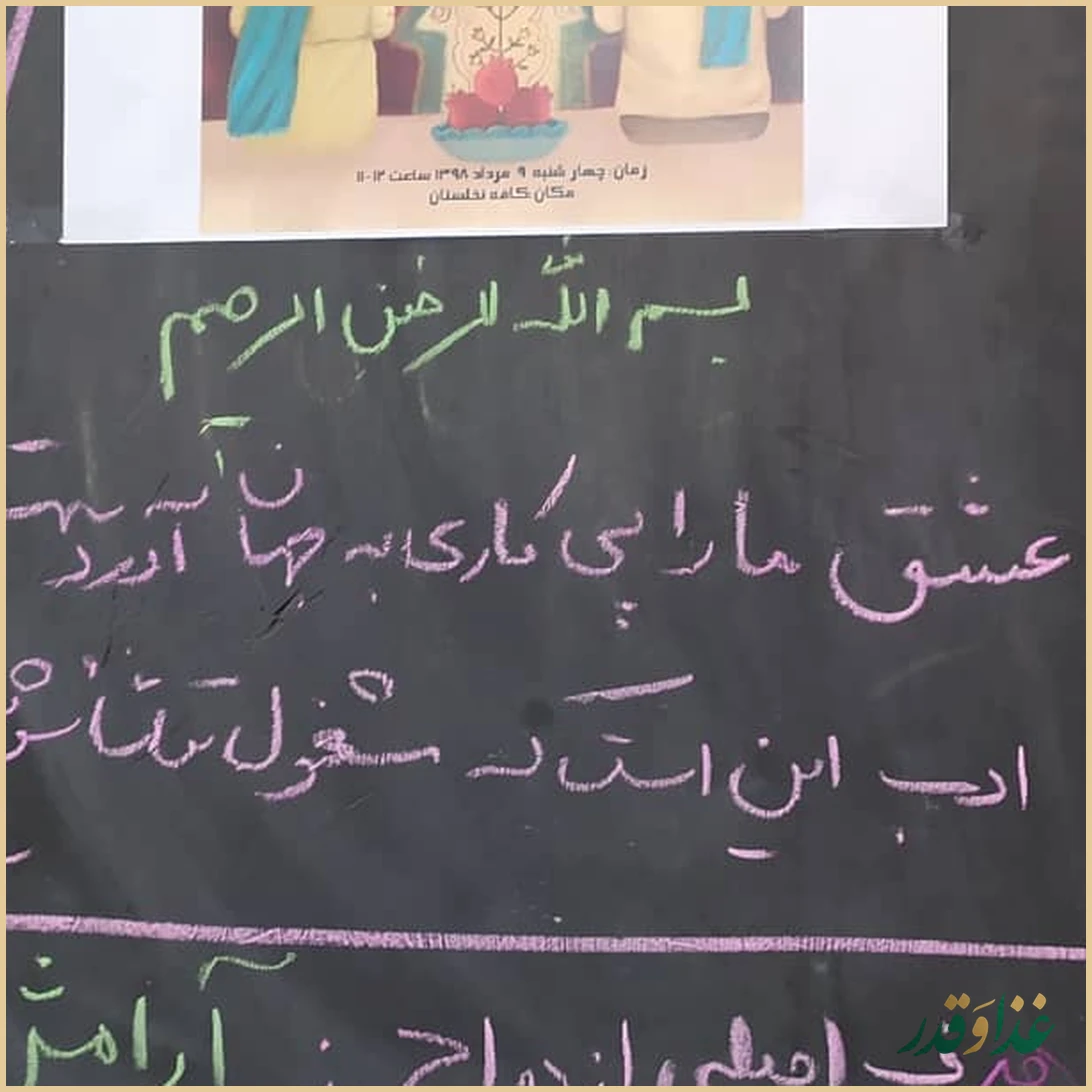 زمان: چهار شنبه ۹ مرداد ۱۳۹۸ ساعت ۱۲-۱۱
مکان: کافه نخلستان
بسم الله الرحمن الرحیم
عشق ما را پی کاری به جهان آورده
ادب این است که مشغول تماشا
اصلی ازدواج : آرامش
غذا وَقدر